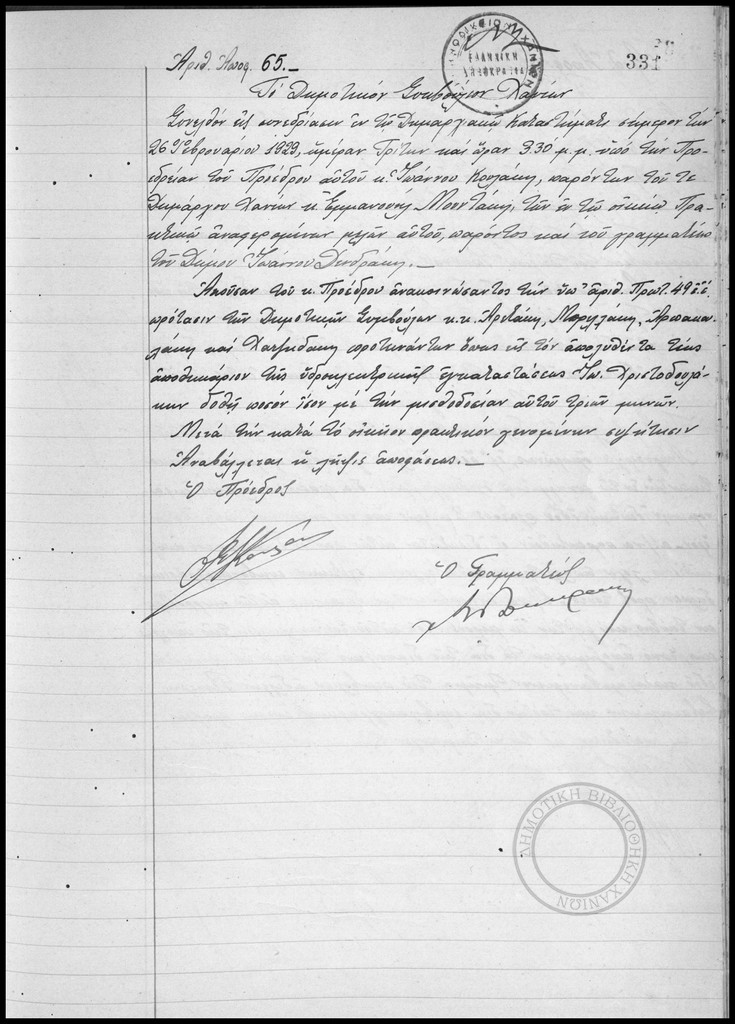 Ἀριθ. Ἀποφ. 65.—
331
ΕΛΛΗΝΙΚΗ
ΔΗΜΟΚΡΑΤΙΑ
Τὸ Δημοτικὸν Συμβούλιον Χανίων
Συνελθὸν εἰς συνεδρίασιν ἐν τῷ Δημαρχιακῷ Καταστήματι σήμερον τὴν
26 Φεβρουαρίου 1929, ἡμέραν Τρίτην καὶ ὥραν 3.30 μ.μ. ὑπὸ τὴν Προ-
εδρίαν τοῦ Προέδρου αὐτοῦ κ. Ἰωάννου Κουλάκη, παρόντων τοῦ τε
Δημάρχου Χανίων κ. Ἐμμανουὴλ Μουντάκη, τῶν ἐν τῷ οἰκείῳ Πρα-
κτικῷ ἀναφερομένων μελῶν αὐτοῦ, παρόντος καὶ τοῦ γραμματέως
τοῦ Δήμου Ἰωάννου Δενδράκη.—
Ἀκοῦσαν τοῦ κ. Προέδρου ἀνακοινώσαντος τὴν ὑπ' ἀριθ. Πρωτ. 49 ἐ.ἔ.
πρότασιν τῶν Δημοτικῶν Συμβούλων κ.κ. Μπριλλάκη, Ἀρπακου-
λάκη καὶ Χατζηδάκη προτεινάντων ὅπως εἰς τὸν ἀπολυθέντα τέως
ἀποθηκάριον τῆς ὑδροηλεκτρικῆς ἐγκαταστάσεως Ἰω. Χριστοδουλά-
κην δοθῇ ποσὸν ἴσον μὲ τὴν μισθοδοσίαν αὐτοῦ τριῶν μηνῶν.
Μετὰ τὴν κατὰ τὸ οἰκεῖον πρακτικὸν γενομένην συζήτησιν
Ἀναβάλλεται ἡ λῆψις ἀποφάσεως.—
Ὁ Πρόεδρος
Ὁ Γραμματεύς
ΔΗΜΟΤΙΚΗ ΒΙΒΛΙΟΘΗΚΗ ΧΑΝΙΩΝ